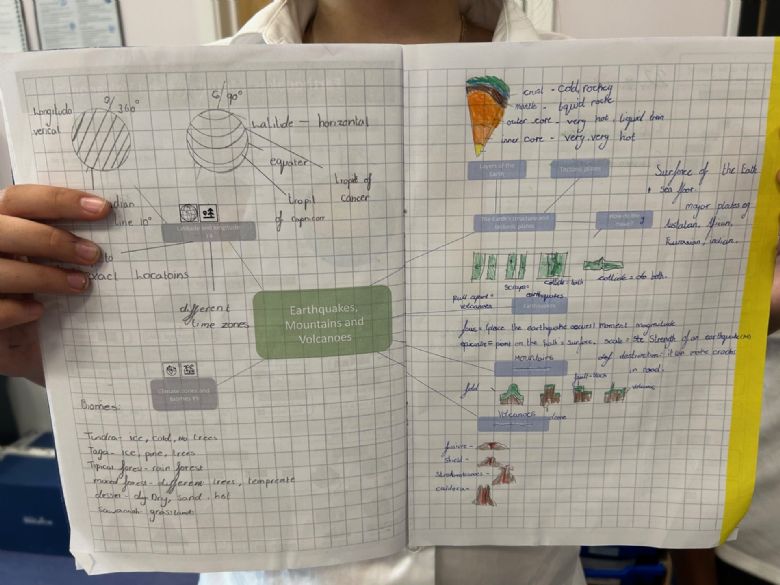 Longitude
verical
0/360°
90°
Latitide - horizontal
equater
tropil
of
tropic of
cancer
dian
line 10°
Latitude and longitude
exact Locatoins
different
time zones
Earthquakes,
Mountains and
Volcanoes
Climate zones and
biomes
Biomes:
Tundra - ice, cold, no trees
Taga - ice, pine, trees
forest - rain forest
mixed forest - different trees, temperate
Dry, sand, hot
Savannah - grasslands
crust - cold, rockey
mantle - liquid rock
outer core - very hot, liquid
inner core - very, very hot
Layers of the
Earth
Tectonic plates
Surface of the Earth
sea floor.
The Earth's structure and
tectonic plates
How do they
move?
major plates of
African,
Indian.
Scrape =
earthquakes
collide = both
collide = both.
pull apart =
volcanoes
Earthquakes
(place the earthquake occurs) moment magnitude
point on the Earth = surface. scale = Strength of an earthquake
destruction: it can make cracks
in
Mountains
fold
fault-block
volcanic
dome
Volcanoes
fissure -
shield -
caldera -